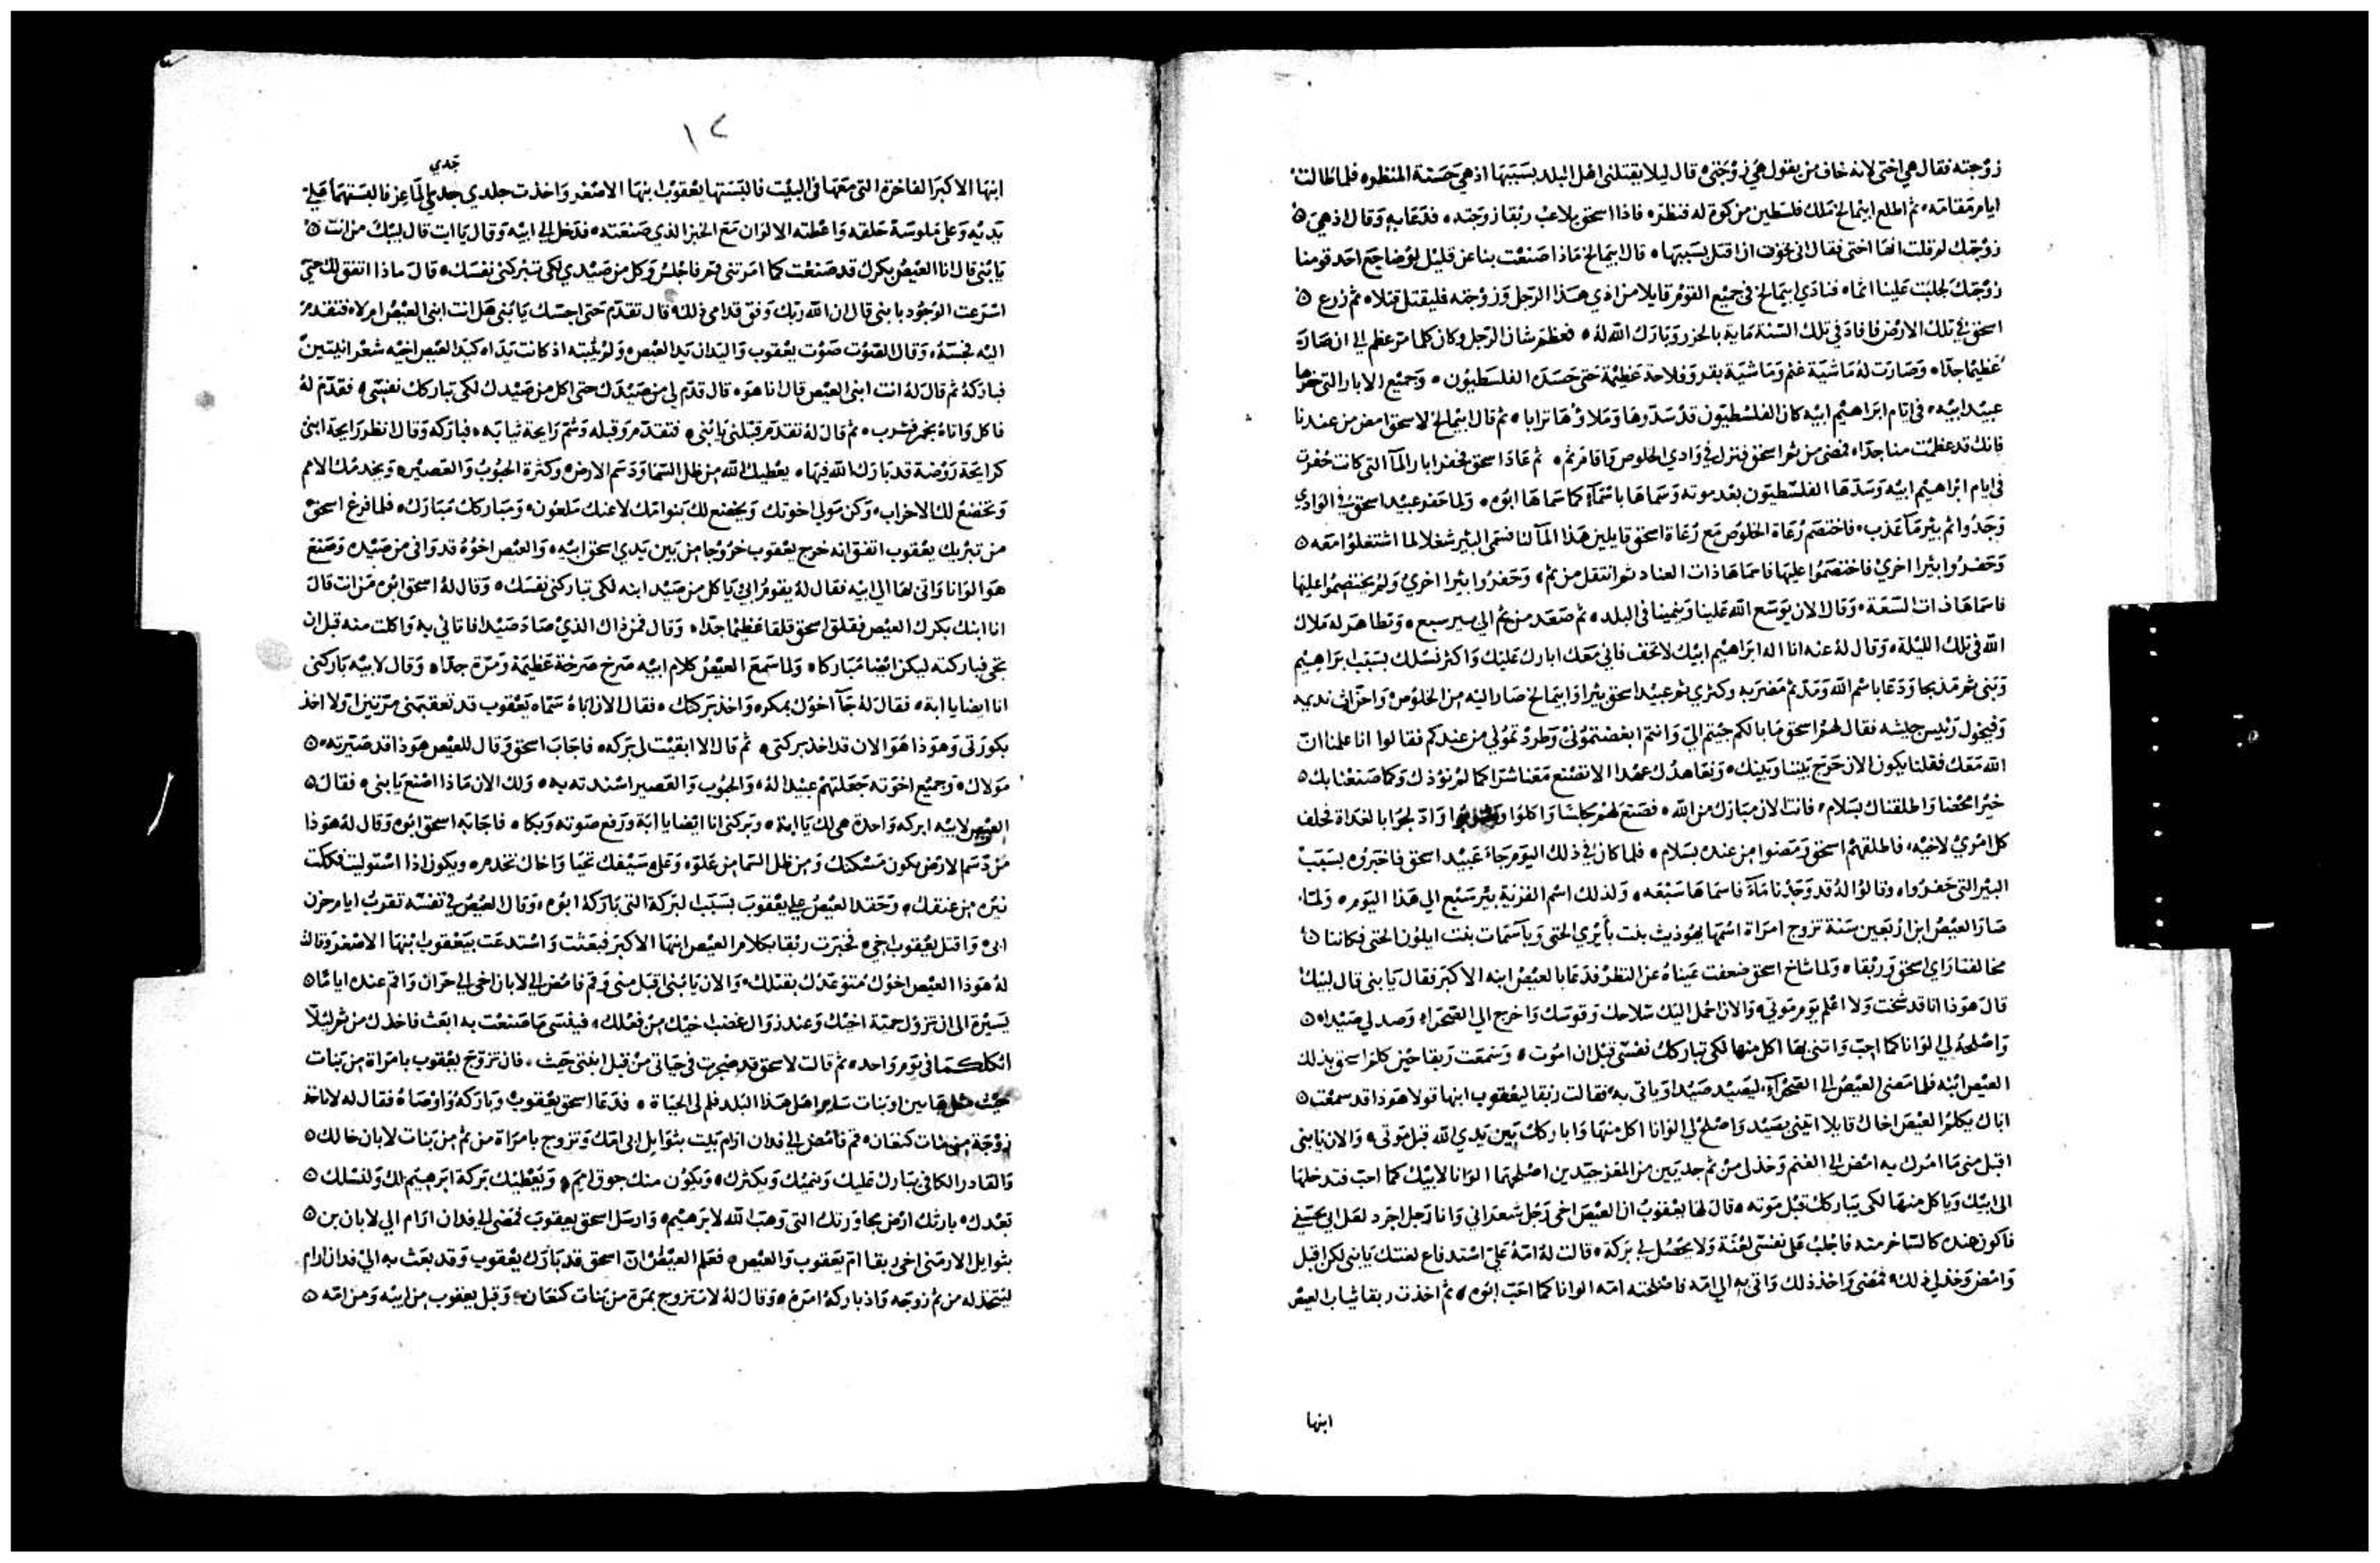 زوجته فقال هي اختي لانه خاف من يقول هي زوجتي قال ليلا يقتلني اهل البلد بسببها اذ هي حسنة المنظره فلما طالت
ايام مقامه ثم اطلع ابيمالخ ملك فلسطين من كوة له فنظره فاذا اسحق يلاعب ربقا زوجته فدعا به وقال اذ هي
زوجتك لم قلت انها اختي فقال اني تخوفت ان اقتل بسببها قال ابيمالخ ماذا صنعت بنا عن قليل لوضاجع احد قومنا
زوجتك لجلبت علينا اثما فنادي ابيمالخ في جميع القوم قايلا من اذي هذا الرجل وزوجته فليقتل قتلا ثم زرع
اسحق في تلك الارض فافاد في تلك السنة ماية بالحزر وبارك الله له فعظم شان الرجل وكان كلما مر عظم الي ان صار
عظيما جدا وصارت له ماشية غنم وماشية بقر وفلاحة عظيمة حتي حسده الفلسطيون وجميع الابار التي حفرها
عبيد ابيه في ايام ابراهيم ابيه كان الفلسطيون قد سدوها وملاوها ترابا ثم قال ابيمالخ لاسحق امض من عندنا
فانك قد عظمت منا جدا فمضي من ثم اسحق فنزل في وادي الخلوص واقام ثم ثم عاد اسحق فحفر ابار المآ التي كانت حفرت
في ايام ابراهيم ابيه وسدها الفلسطيون بعد موته وسماها باسمآ كما سماها ابوه ولما حفر عبيد اسحق في الوادي
وجدوا ثم بير مآ عذب فاختصم رعاة الخلوص مع رعاة اسحق قايلين هذا المآ لنا فسمي البير شغلا لما اشتغلوا معه
وحفروا بيرا اخري فاختصموا عليها فاسماها ذات العناد ثم انتقل من ثم وحفروا بيرا اخري ولم يختصموا عليها
فاسماها ذات السعة وقال الان يوسع الله علينا وينمينا في البلد ثم صعد من ثم الي بير سبع وتظاهر له ملاك
الله في تلك الليلة وقال له عنه انا اله ابراهيم ابيك لا تخف فاني معك ابارك عليك واكثر نسلك بسبب ابراهيم
وبني ثم مذبحا ودعا باسم الله ومد ثم مضربه وكري ثم عبيد اسحق بيرا وابيمالخ صار اليه من الخلوص واحزاث نديمه
وفيخول رييس جيشه فقال لهم اسحق ما بالكم جيتم الي وانتم ابغضتموني وطردتموني من عندكم فقالوا انا علمنا ان
الله معك فقلنا يكون الان حرج بيننا وبينك ونعاهدك عهدا الا تصنع معنا شرا كما لم نوذك وكما صنعنا بك
خيرا محضا واطلقناك بسلام فانت الان مبارك من الله فصنع لهم مجلسا واكلوا وشربوا وادلجوا بالغداة فحلف
كل امري لاخيه فاطلقهم اسحق ومضوا من عنده بسلام فلما كان في ذلك اليوم جاء عبيد اسحق فاخبروه بسبب
البير التي حفروا وقالوا له قد وجدنا مآء فاسماها سبعه ولذلك اسم القرية بير سبع الي هذا اليوم ولما
صار العيص ابن اربعين سنة تزوج امراة اسمها يهوذيث بنت بأيري الحتي وبآسمات بنت ايلون الحتي فكاننا
مخالفتا راي اسحق وربقا ولما شاخ اسحق ضعفت عيناه عن النظر فدعا بالعيص ابنه الاكبر فقال يا بني قال لبيك
قال هوذا انا قد شخت ولا اعلم يوم موتي والان احمل اليك سلاحك وقوسك واخرج الي الصحراء وصد لي صيدا
واصلحه لي الوانا كما احب واتني بها اكل منها لكي تباركك نفسي قبل ان اموت وسمعت ربقا حين كلم اسحق بذلك
العيص ابنه فلما مضي العيص الي الصحرآء ليصيد صيدا وياتي به فقالت ربقا ليعقوب ابنها قولا هوذا قد سمعت
اباك يكلم العيص اخاك قايلا ايتني بصيد واصلح لي الوانا اكل منها واباركك بين يدي الله قبل موتي والان يا بني
اقبل مني ما امرك به امض الي الغنم وخذ لي من ثم جديين من المعز جيدين اصلحهما الوانا لابيك كما احب فتدخلها
الي ابيك وياكل منها لكي يباركك قبل موته قال لها يعقوب ان العيص اخي رجل شعراني وانا رجل اجرد لعل ابي يجسني
فاكون عنده كالساخر منه فاجلب علي نفسي لعنة ولا يحصل لي بركة قالت له امه علي استدفاع لعنتك يا بني لكن اقبل
وامض وخذ لي ذلك فمضي واخذ ذلك واتي به الي امه فاصلحته امه الوانا كما احب ابوه ثم اخذت ربقا ثياب العيص
ابنها
١٢
جدي
ابنها الاكبر الفاخرة التي معها في البيت فالبستها يعقوب ابنها الاصغر واخذت جلدي الماعز فالبستهما علي
يديه وعلي ملوسة حلقه واعطته الالوان مع الخبز الذي صنعته فدخل الي ابيه وقال يا ابت قال لبيك من انت
يا بني قال انا العيص بكرك قد صنعت كما امرتني قم فاجلس وكل من صيدي لكي تبركني نفسك قال ماذا اتفق لك حتي
اسرعت الوجود يا بني قال ان الله ربك وفق قدامي ذلك قال تقدم حتي اجسك يا بني هل انت ابني العيص ام لا فتقدم
اليه فجسه وقال الصوت صوت يعقوب واليدان يدا العيص ولم يثبته اذ كانت يداه كيدا العيص اخيه شعرانيتين
فباركه ثم قال له انت ابني العيص قال انا هو قال قدم لي من صيدك حتي اكل من صيدك لكي تباركك نفسي فقدم له
فاكل واتاه بخمر فشرب ثم قال له تقدم قبلني يا بني فتقدم وقبله وشم رايحة ثيابه فباركه وقال انظر رايحة ابني
كرايحة روضة قد بارك الله فيها يعطيك الله من ظل السما ودسم الارض وكثرة الحبوب والعصير ويخدمك الامم
وتخضع لك الاحزاب وكن مولي اخوتك ويخضع لك بنوا امك لاعنك ملعون ومباركك مبارك فلما فرغ اسحق
من تبريك يعقوب اتفق انه خرج يعقوب خروجا من بين يدي اسحق ابيه والعيص اخوه قد وافي من صيده وصنع
هو الوانا واتي بها الي ابيه فقال له يقوم ابي ياكل من صيد ابنه لكي تباركني نفسك وقال له اسحق ابوه من انت قال
انا ابنك بكرك العيص فقلق اسحق قلقا عظيما جدا وقال فمن ذاك الذي صاد صيدا فاتاني به واكلت منه قبل ان
تجي فباركته ليكن ايضا مباركا ولما سمع العيص كلام ابيه صرخ صرخة عظيمة ومرة جدا وقال لابيه باركني
انا ايضا يا ابة فقال له جآ اخوك بمكره واخذ بركتك فقال الان اباه سماه يعقوب قد تعقبني مرتين اولا اخذ
بكورتي وهوذا هو الان قد اخذ بركتي ثم قال الا ابقيت لي بركه فاجاب اسحق وقال للعيص هوذا قد صيرته
مولاك وجميع اخوته جعلتهم عبيدا له والحبوب والعصير اسندته به ولك الان ماذا اصنع يا بني فقال
العيص لابيه ابركه واحدة هي لك يا ابة وبركني انا ايضا يا ابة ورفع صوته وبكا فاجابه اسحق ابوه وقال له هوذا
من دسم الارض يكون مسكنك ومن ظل السما من علوه وعلي سيفك تحيا واخاك تخدم ويكون اذا استوليت فككت
نيره من عنقك وحقد العيص علي يعقوب بسبب البركة التي باركه ابوه وقال العيص في نفسه تقرب ايام حزن
ابي واقتل يعقوب اخي فخبرت ربقا بكلام العيص ابنها الاكبر فبعثت واستدعت بيعقوب ابنها الاصغر وقالت
له هوذا العيص اخوك متوعدك بقتلك والان يا بني اقبل مني وقم فامض الي لابان اخي الي حران واقم عنده اياما
يسيرة الي ان تزول حمية اخيك وعند زوال غضب اخيك من فعلك فينسي ما صنعت به ابعث فاخذك من ثم ليلا
اثكلكما في يوم واحد ثم قالت لاسحق قد ضجرت في حياتي من قبل ابنتي حيث فان تزوج يعقوب بامراة من بنات
حيث مثل هاتين او بنات ساير اهل هذا البلد فلم لي الحياة فدعا اسحق يعقوب وباركه واوصاه فقال له لا تاخذ
زوجة من بنات كنعان قم فامض الي فدان ارام بيت بثوايل ابي امك وتزوج بامراة من ثم من بنات لابان خالك
والقادر الكافي يبارك عليك وينميك ويكثرك ويكون منك جوق امم ويعطيك بركة ابرهيم لك ولنسلك
بعدك بارثك ارض مجاورتك التي وهب الله لابرهيم وارسل اسحق يعقوب فمضي الي فدان ارام الي لابان بن
بثوايل الارمني اخي ربقا ام يعقوب والعيص فعلم العيص ان اسحق قد بارك يعقوب وقد بعث به الي فدان ارام
ليتخذ له من ثم زوجه واذ باركه امره وقال له لا تتزوج بمرة من بنات كنعان وقبل يعقوب من ابيه ومن امه